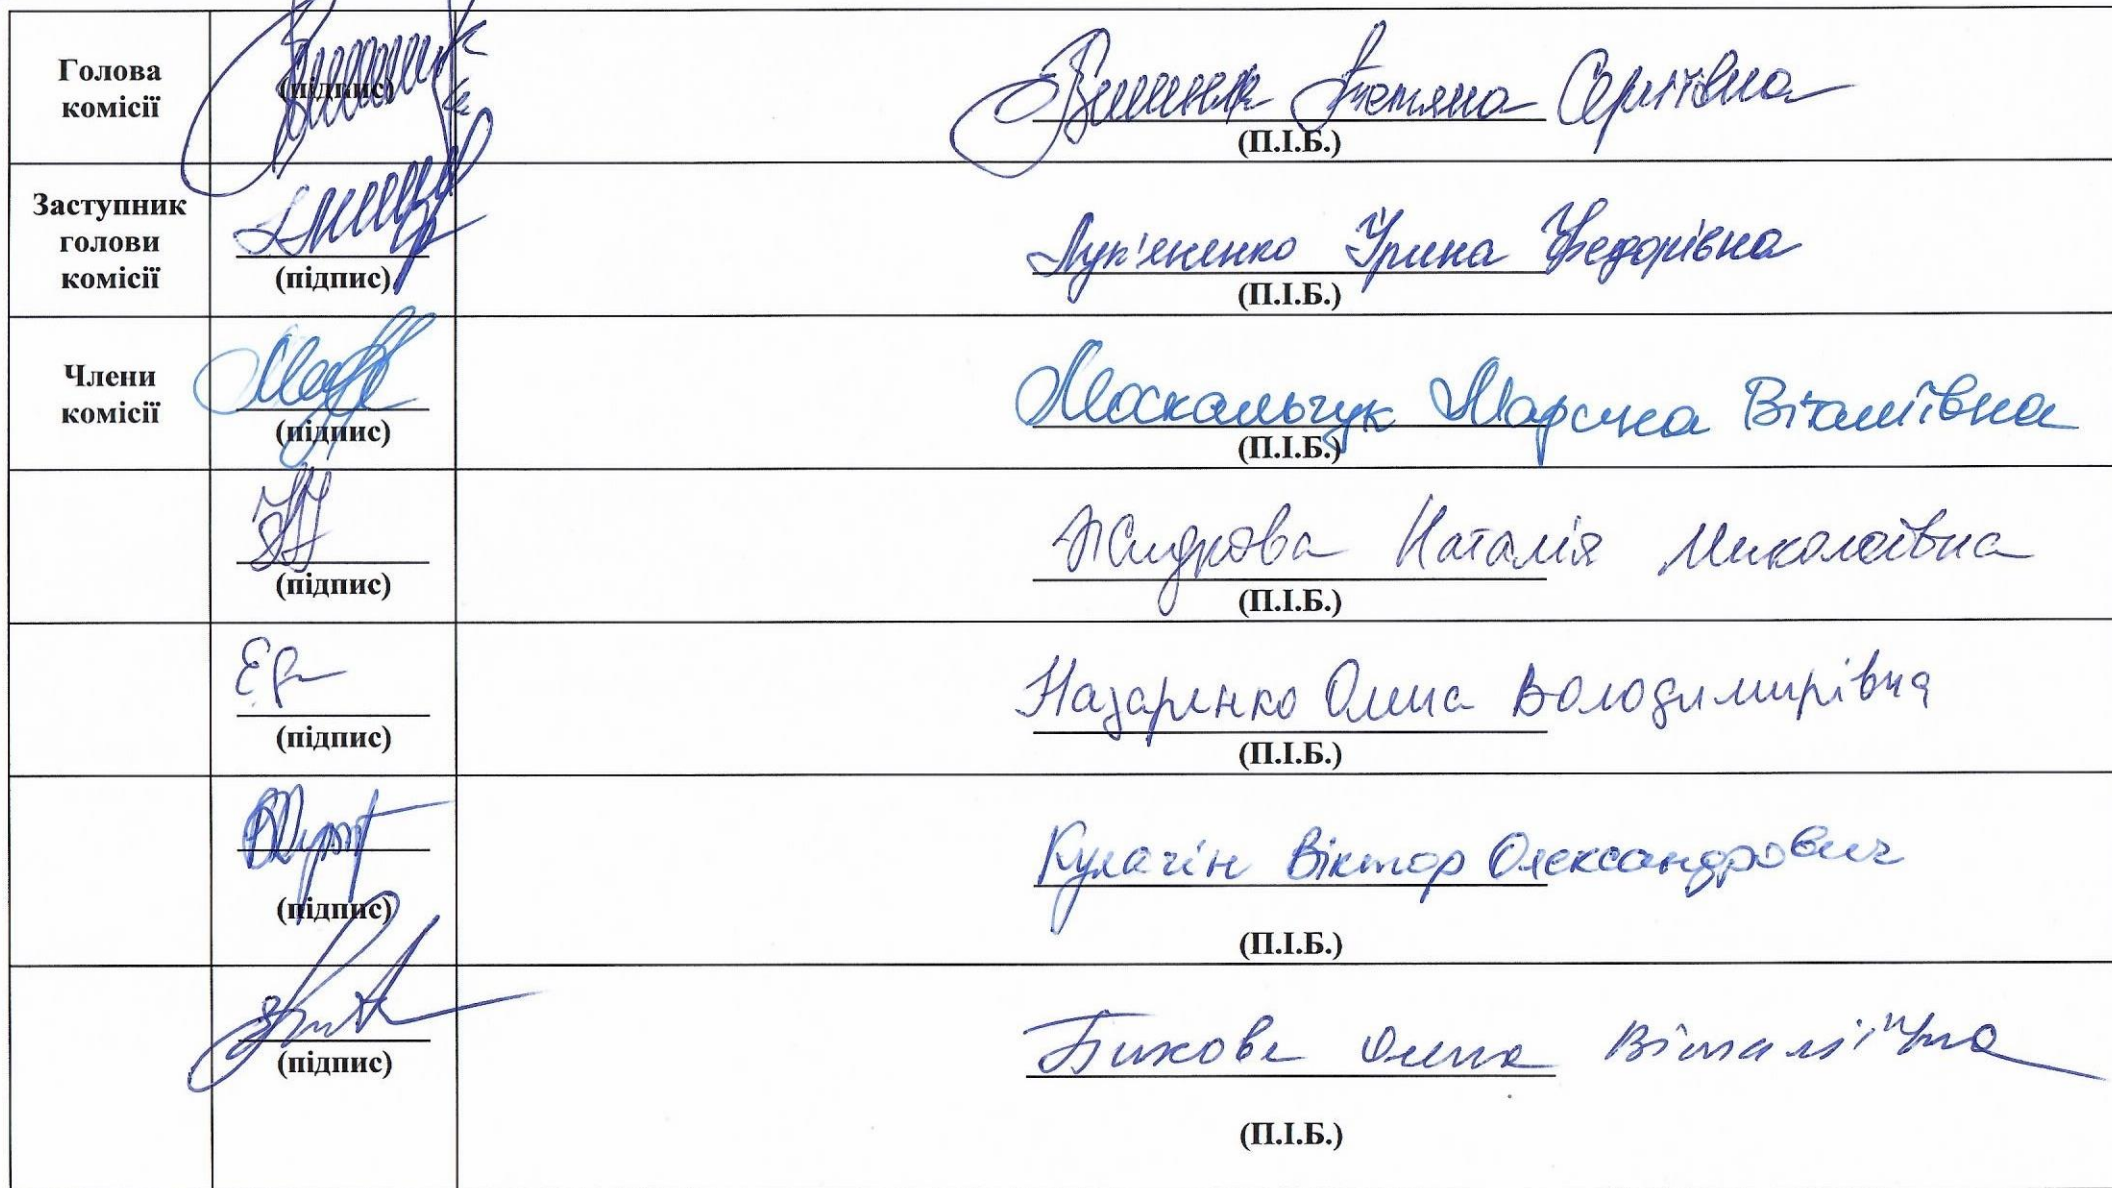 Голова
комісії
(підпис)
Тетяна Сергіївна
(П.І.Б.)
Заступник
голови
комісії
(підпис)
Лук'яненко Ірина Федорівна
(П.І.Б.)
Члени
комісії
(підпис)
Москальчук Марина Віталіївна
(П.І.Б.)
(підпис)
Жидкова Наталія Миколаївна
(П.І.Б.)
(підпис)
Назаренко Олена Володимирівна
(П.І.Б.)
(підпис)
Кулагін Віктор Олександрович
(П.І.Б.)
(підпис)
Бикова Олена Віталіївна
(П.І.Б.)